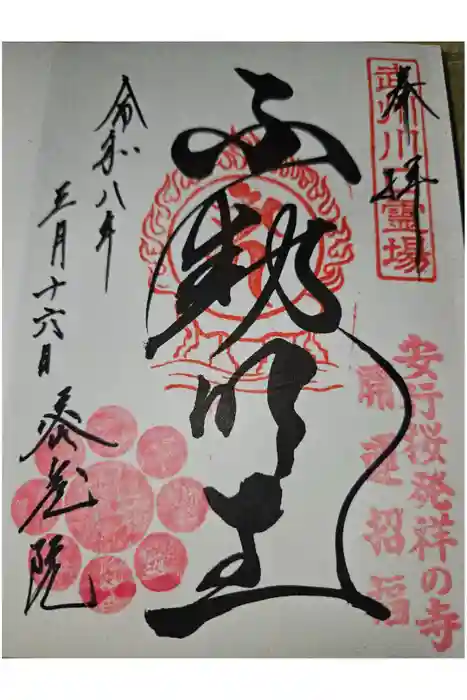 奉拝
武州川口霊場
安行桜発祥の寺
開運招福
不動明王
令和八年
三月十六日